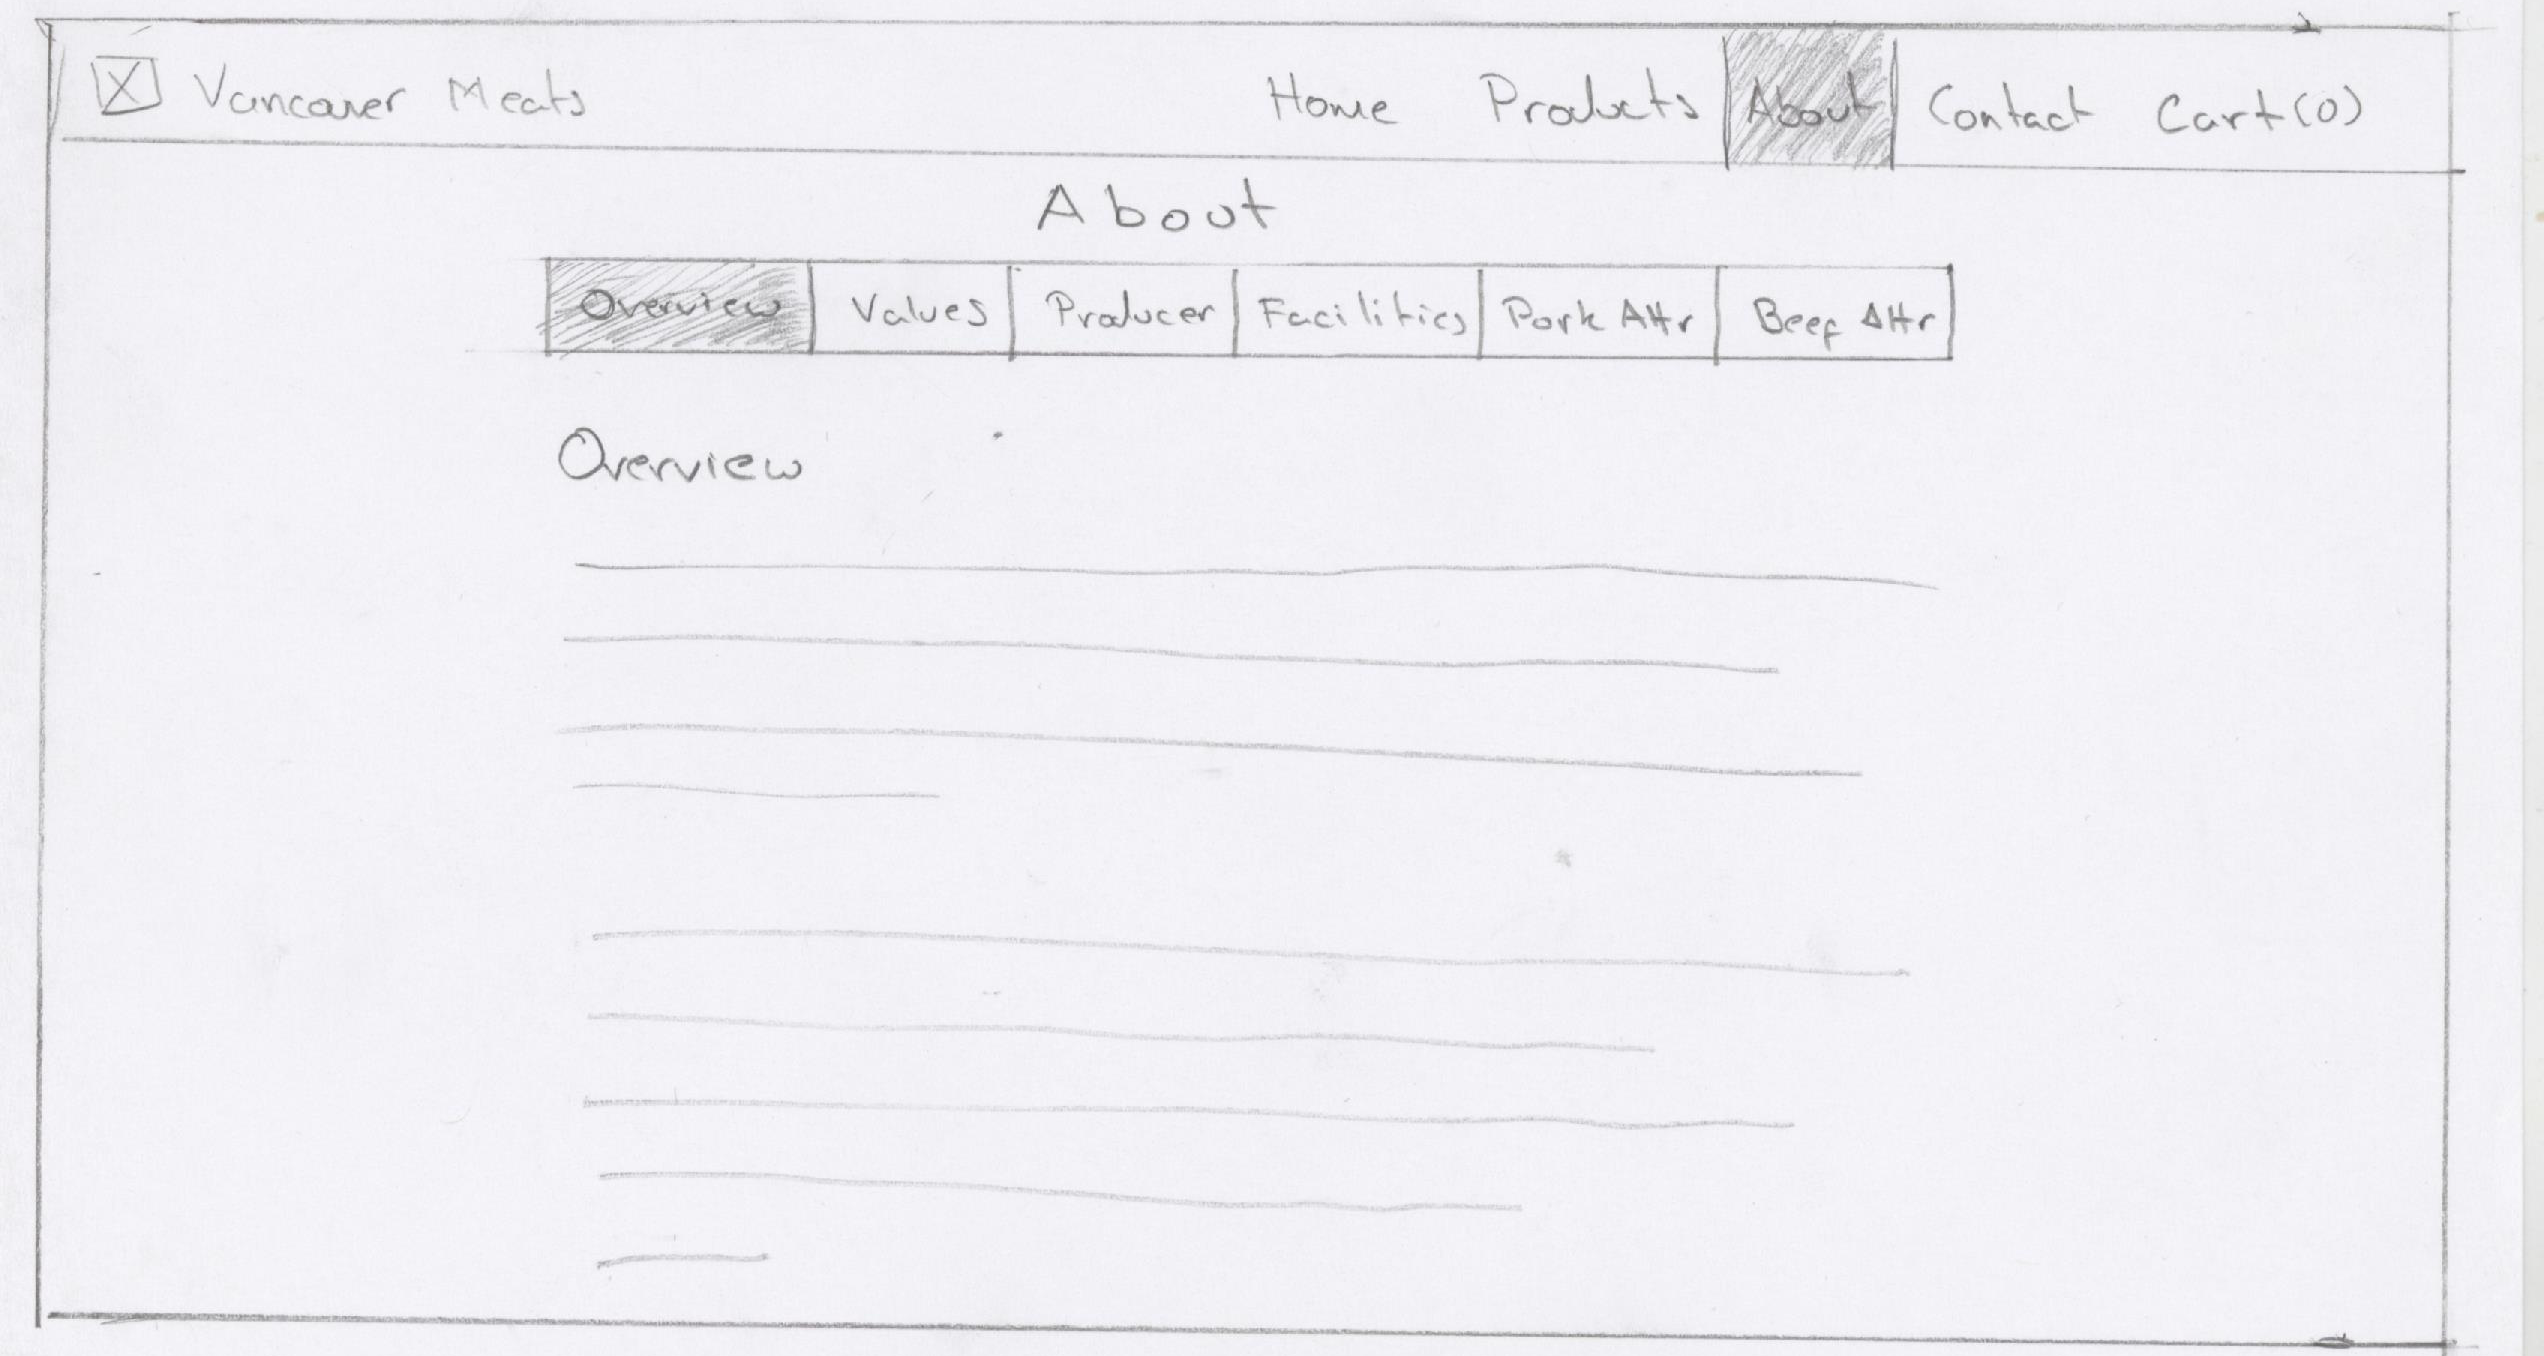 Vancouver Meats Home Products About Contact Cart(0)
About
Overview Values Producer Facilities Pork Attr Beef Attr
Overview